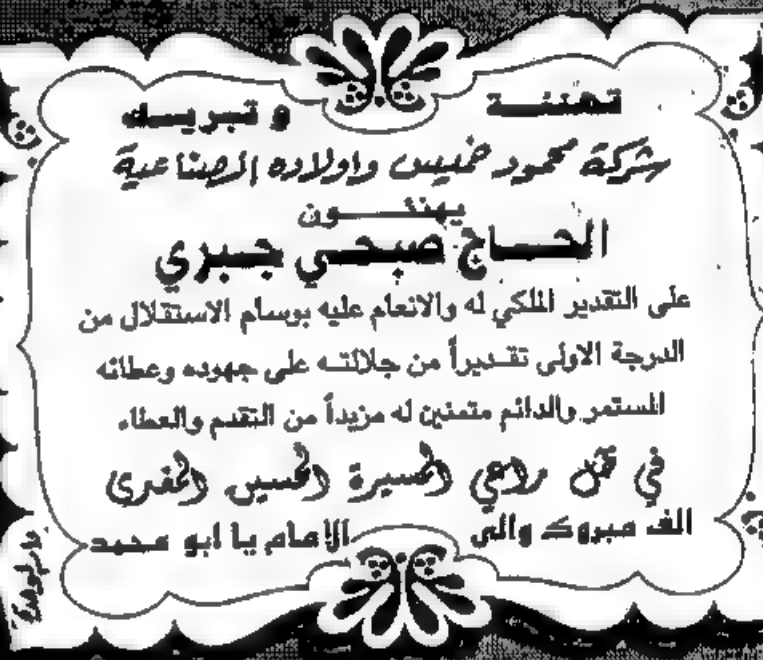 تهنئة وتبريك
شركة محمود خميس واولاده الصناعية
يهنئون
الحاج صبحي جبري
على التقدير الملكي له والانعام عليه بوسام الاستقلال من
الدرجة الاولى تقديراً من جلالته على جهوده وعطائه
المستمر والدائم متمنين له مزيداً من التقدم والعطاء
في ظل راعي المسيرة الحسين المفدى
الف مبروك والى الامام يا ابو محمد